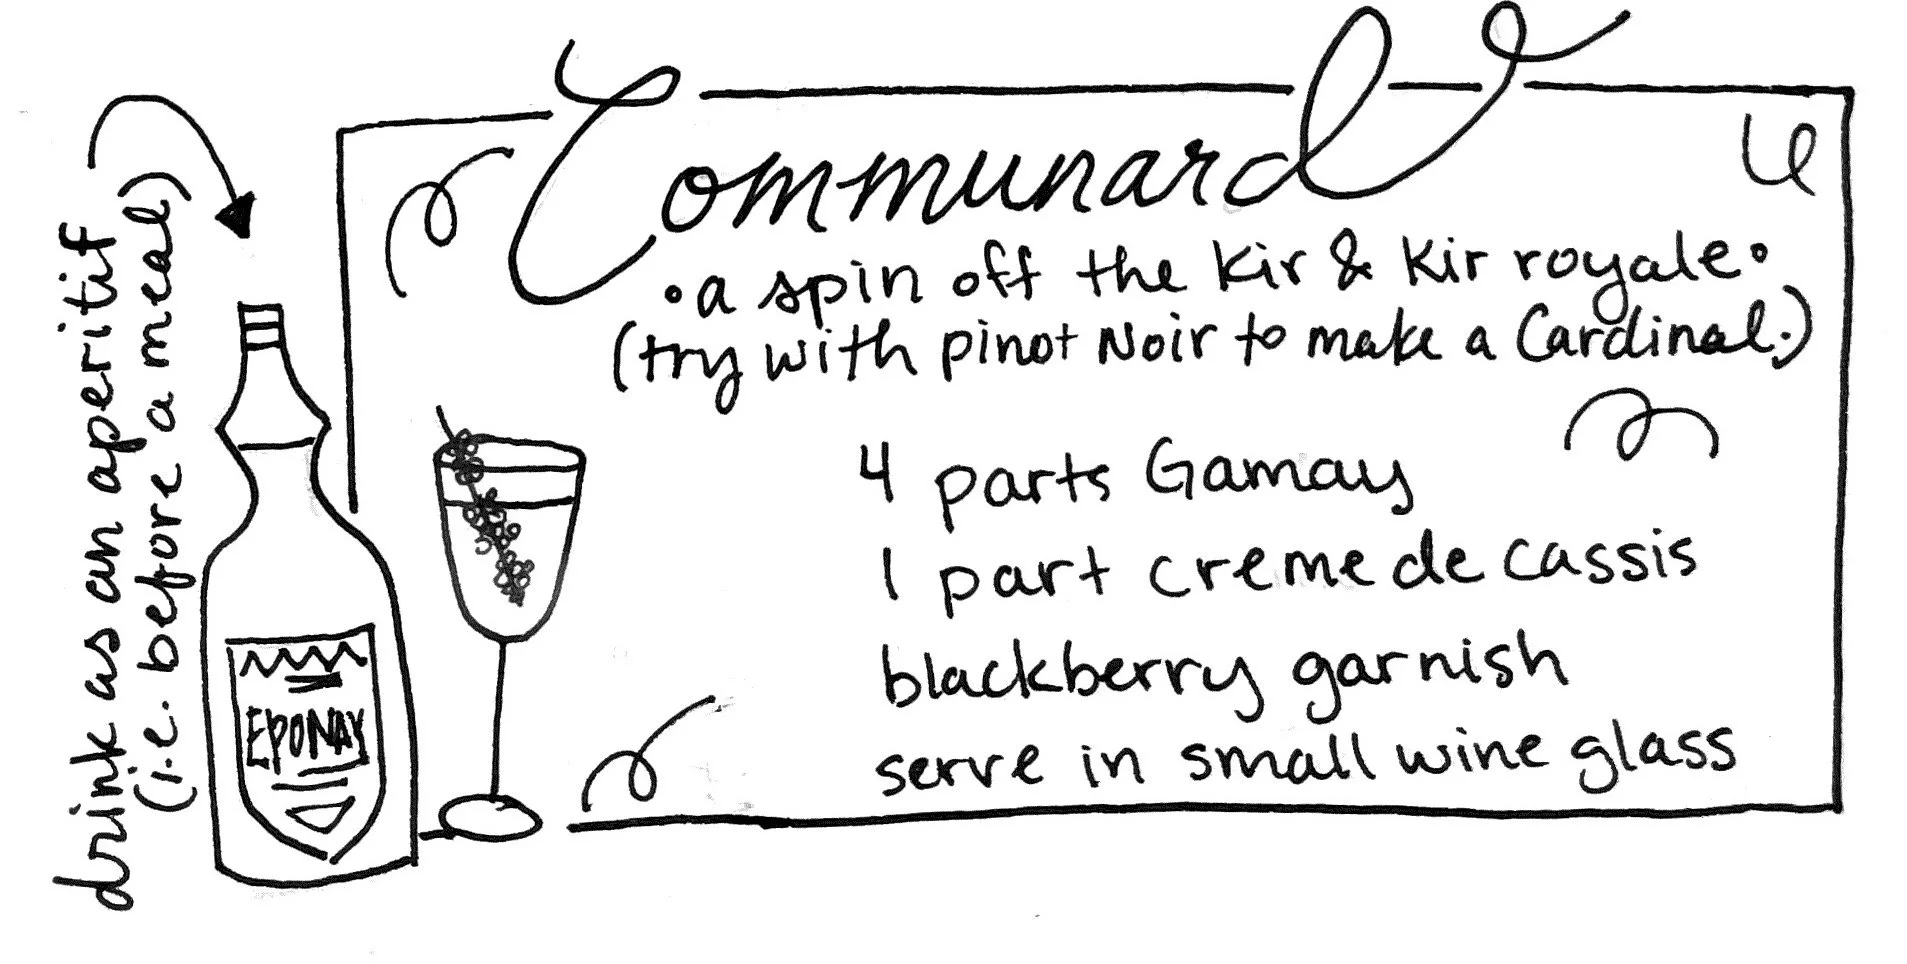 Communard
• a spin off the Kir & Kir royale •
(try with pinot Noir to make a Cardinal.)
4 parts Gamay
1 part creme de cassis
blackberry garnish
serve in small wine glass
drink as an aperitif
(i.e. before a meal)
EPONAY